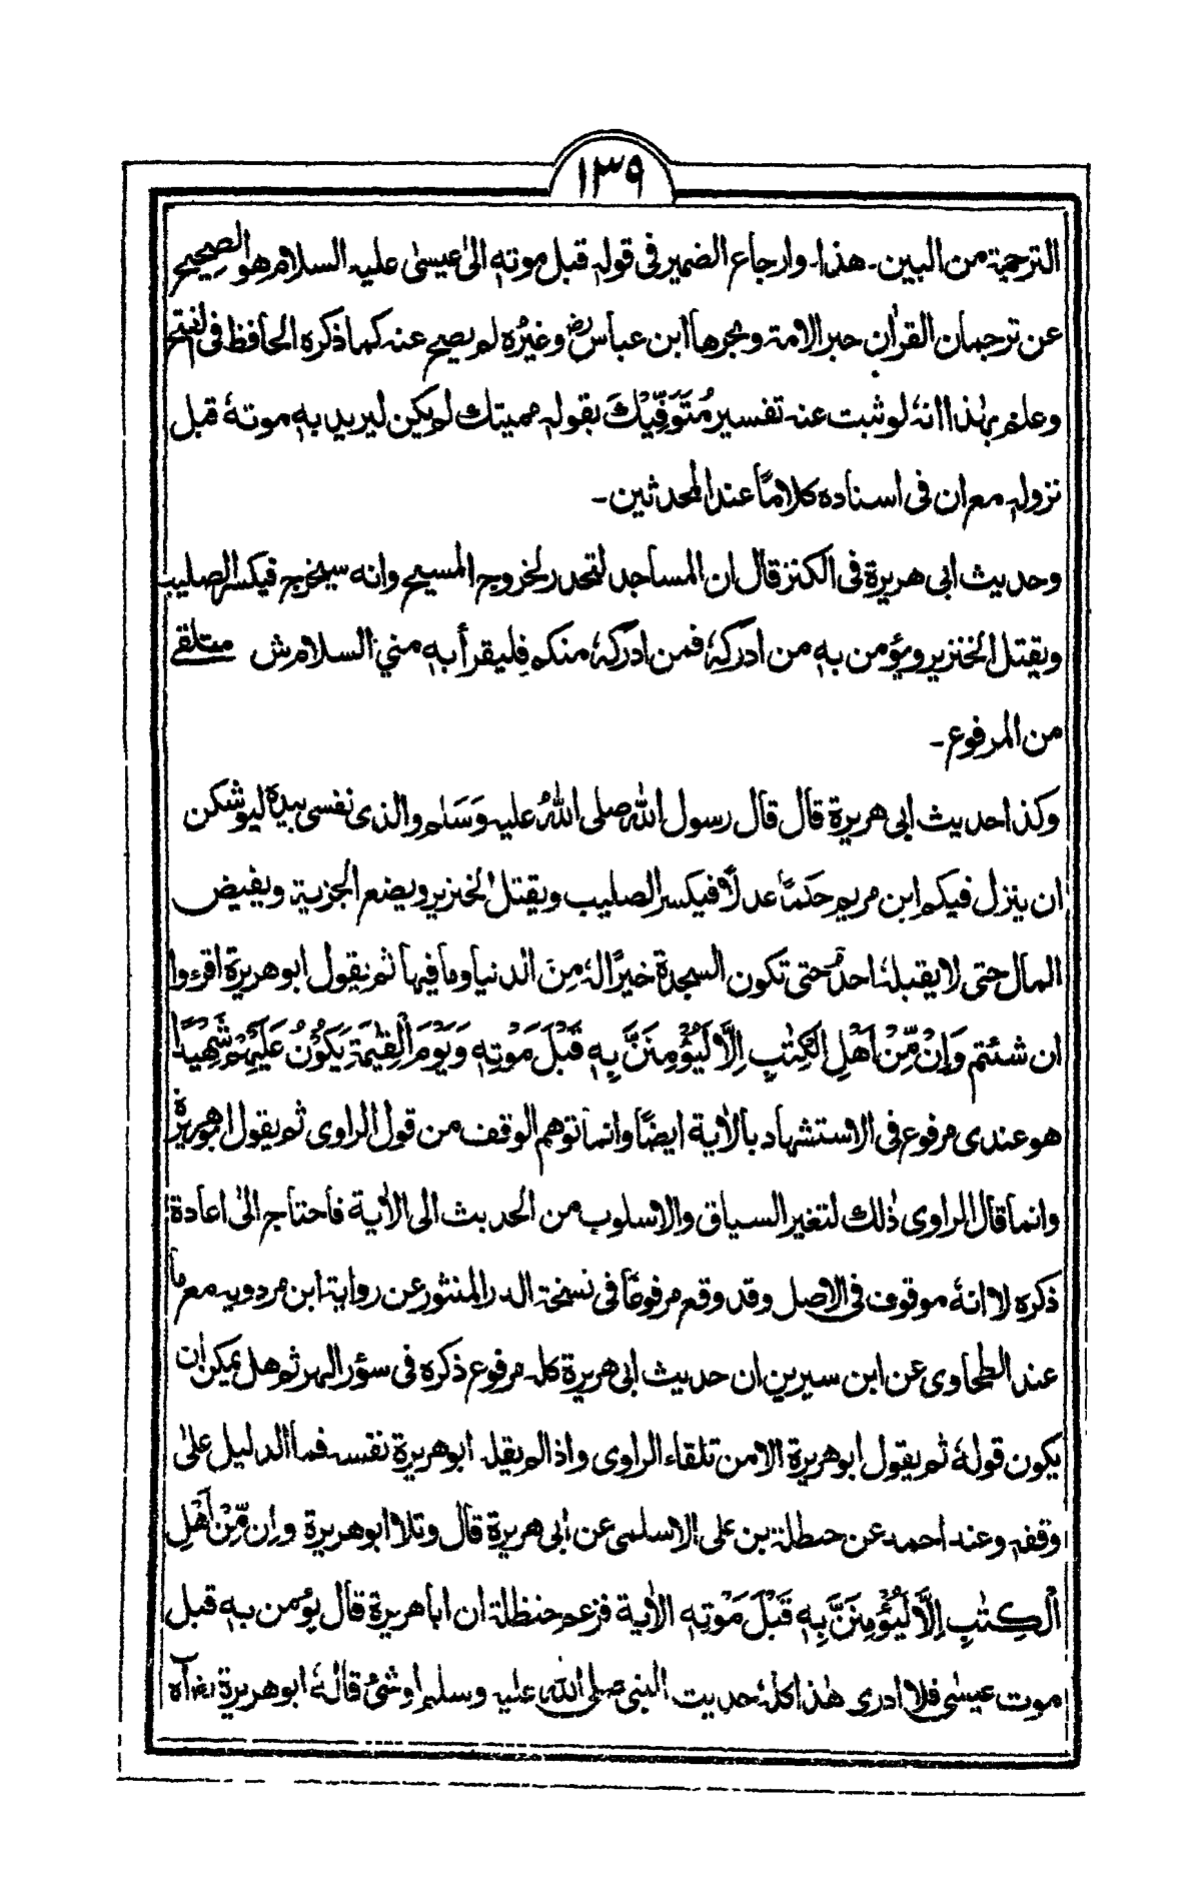 ١٣٩
الترجمة من البين۔ هذا۔ وارجاع الضمير فى قولہٖ قبل موتہٖ الیٰ عیسیٰ علیہ السلام هو الصحیح
عن ترجمان القراٰن حبر الامة وبحرها ابن عباسؓ وغیرُہ لم یصح عنہ كما ذکرہ الحافظ فی الفتح
وعلم بہٰذا انہٗ لو ثبت عنہ تفسیر مُتَوَفِّيْكَ بقولہٖ ممیتك لم یکن لیرید بہٖ موتہٗ قبل
نزولہٖ مع ان فی اسنادہ کلامًا عند المحدثین۔
وحدیث ابی هریرة فی الکنز قال ان المساجد لتجدر لخروج المسیح وانه سیخرج فیکسر الصلیب
ویقتل الخنزیر ویؤمن بہٖ من ادرکہٗ فمن ادرکہٗ منکم فلیقرأبہٖ منی السلام ش متلقے
من المرفوع۔
وکذا حدیث ابی هریرة قال قال رسول اللہ صلی اللہُ علیہ وَسَلم والذی نفسی بیدہ لیوشکن
ان ینزل فیکم ابن مریم حَکَمًا عدلًا فیکسر الصلیب ویقتل الخنزیر ویضع الجزیة ویفیض
المال حتی لا یقبلہٗ احدٌ حتی تکون السجدة خیرًا لہٗ مِنَ الدنیا وما فیها ثم یقول ابو هریرة اقرءوا
ان شئتم وَاِنْ مِّنْ اَهْلِ الْكِتٰبِ اِلَّا لَيُؤْمِنَنَّ بِہٖ قَبْلَ مَوْتِہٖ وَيَوْمَ الْقِيٰمَةِ يَكُوْنُ عَلَيْهِمْ شَهِيْدًا
هو عندی مرفوع فی الاستشهاد بالاٰیة ایضًا وانما توهم الوقف من قول الراوی ثم یقول ابوهریرة
وانما قال الراوی ذٰلك لتغیر السیاق والاسلوب من الحدیث الی الاٰیة فاحتاج الیٰ اعادة
ذکرہ لا انہٗ موقوف فی الاصل وقد وقع مرفوعًا فی نسخة الدر المنثور عن روایة ابن مردویہ مع ما
عند الطحاوی عن ابن سیرین ان حدیث ابی هریرة کلہ مرفوع ذکرہ فی سؤر الهر ثم هل یمکن ان
یکون قولہٗ ثم یقول ابو هریرة الا من تلقاء الراوی واذا لم یقلہ ابو هریرة نفسہ فما الدلیل علیٰ
وقفہٖ وعند احمد عن حنظلة بن علی الاسلمی عن ابی هریرة قال وتلا ابو هریرة وان مِّنْ اَهْلِ
الْكِتٰبِ اِلَّا لَيُؤْمِنَنَّ بِہٖ قَبْلَ مَوْتِہٖ الاٰیة فزعم حنظلة ان ابا هریرة قال یؤمن بہٖ قبل
موت عیسٰی فلا ادری هٰذا کلہٗ حدیث النبی صلی اللہ علیہ وسلم او شئٌ قالہٗ ابو هریرةؓ اٰہ